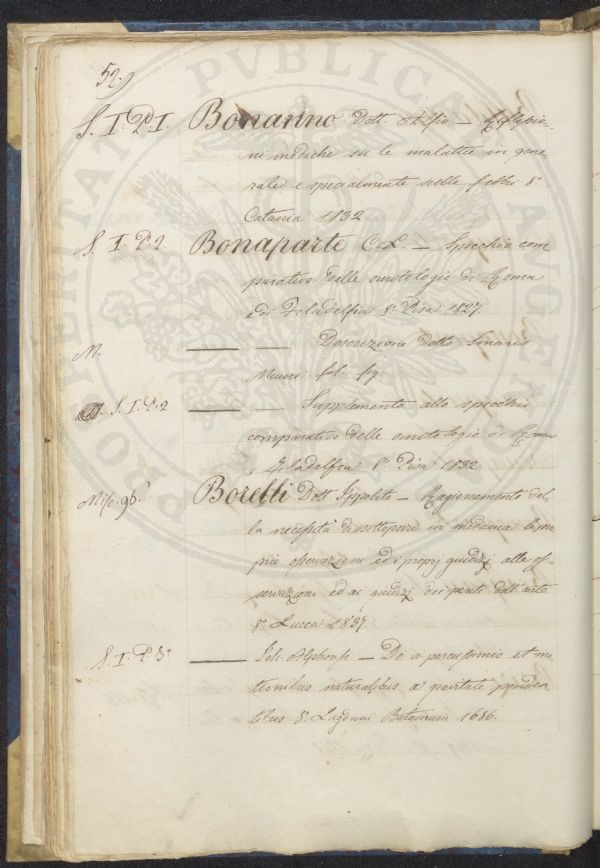 52.
S. I. P. I. Bonanno Dott. Alfio — Riflessio-
ni mediche su le malattie in gene
rale e specialmente sulle febbri 8°
Catania 1832
S. I. P. 2 Bonaparte C. L. — Specchio com
parativo delle ornitologie di Roma
e di Filadelfia 8° Pisa 1827.
M. — — Descrizione dello Smaris
fol. fig:
S. I. P. 2 — — Supplimento allo specchio
comparativo delle ornitologie di Roma
e Filadelfia 8° Pisa 1832
Misc. 96. Borelli Dott Ippolito — Ragionamento del-
la necessità di sottoporre in medicina le pro
prie osservazioni ed i proprj giudizj alle os-
servazioni ed ai giudizj dei periti dell'arte
8° Lucca 1837.
S. I. P. 3° — Joh: Alphonsi — De vi percussionis et mo-
tionibus naturalibus a gravitate penden-
tibus 8° Lugduni Batavorum 1686.
PVBLICAE AVGENDAE PROSPERITATI